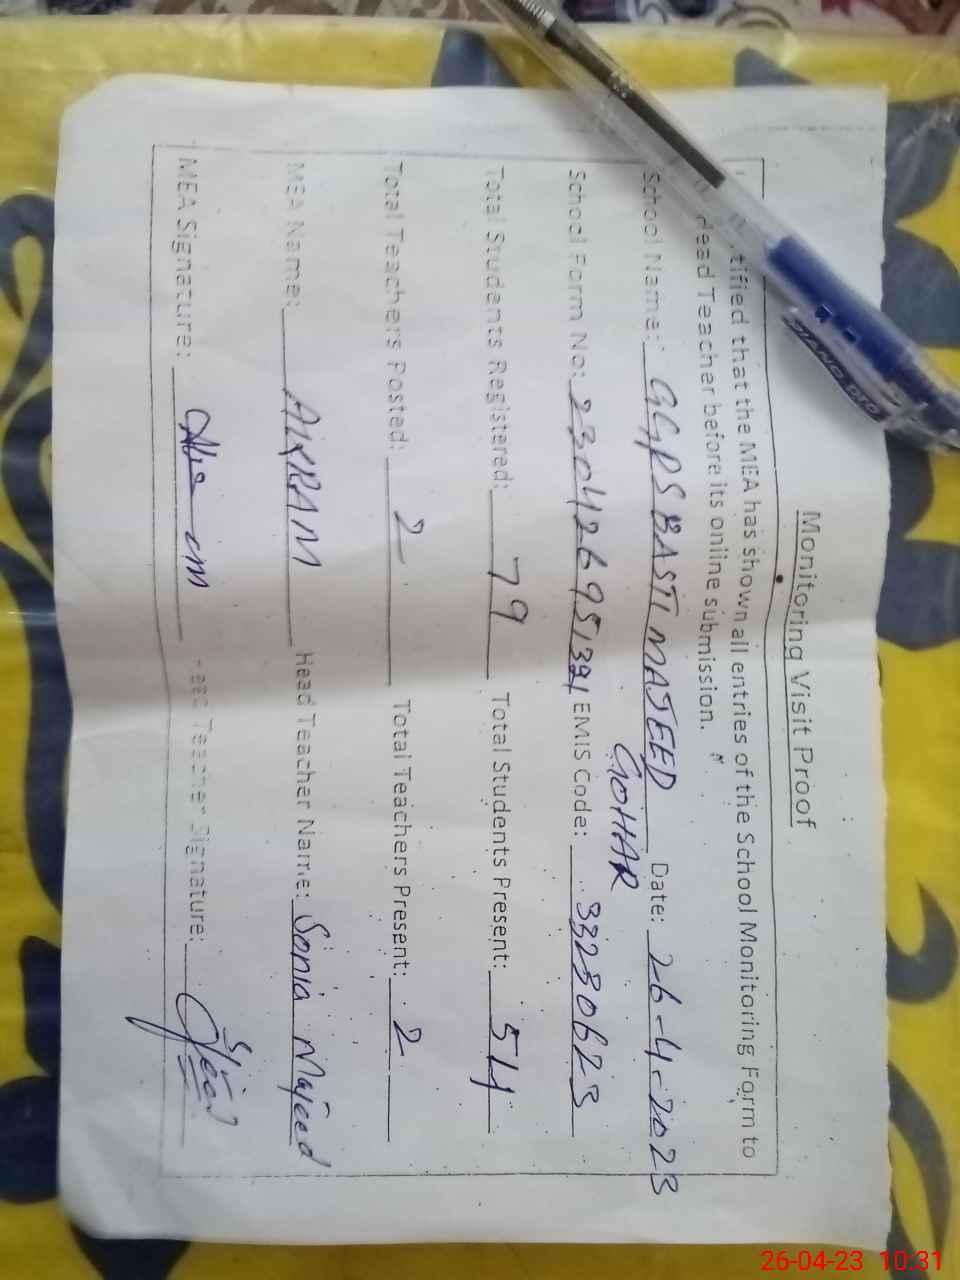 Monitoring Visit Proof
tified that the MEA has shown all entries of the School Monitoring Form to
Head Teacher before its online submission.
School Name: GGPS BASTI MAJEED GOHAR Date: 26-4-2023
School Form No: EMIS Code: 33230623
Total Students Registered: 79 Total Students Present: 54
Total Teachers Posted: 2 Total Teachers Present: 2
MEA Name: AKRAM Head Teacher Name: Sonia Majeed
MEA Signature: Head Teacher Signature:
26-04-23 10:31